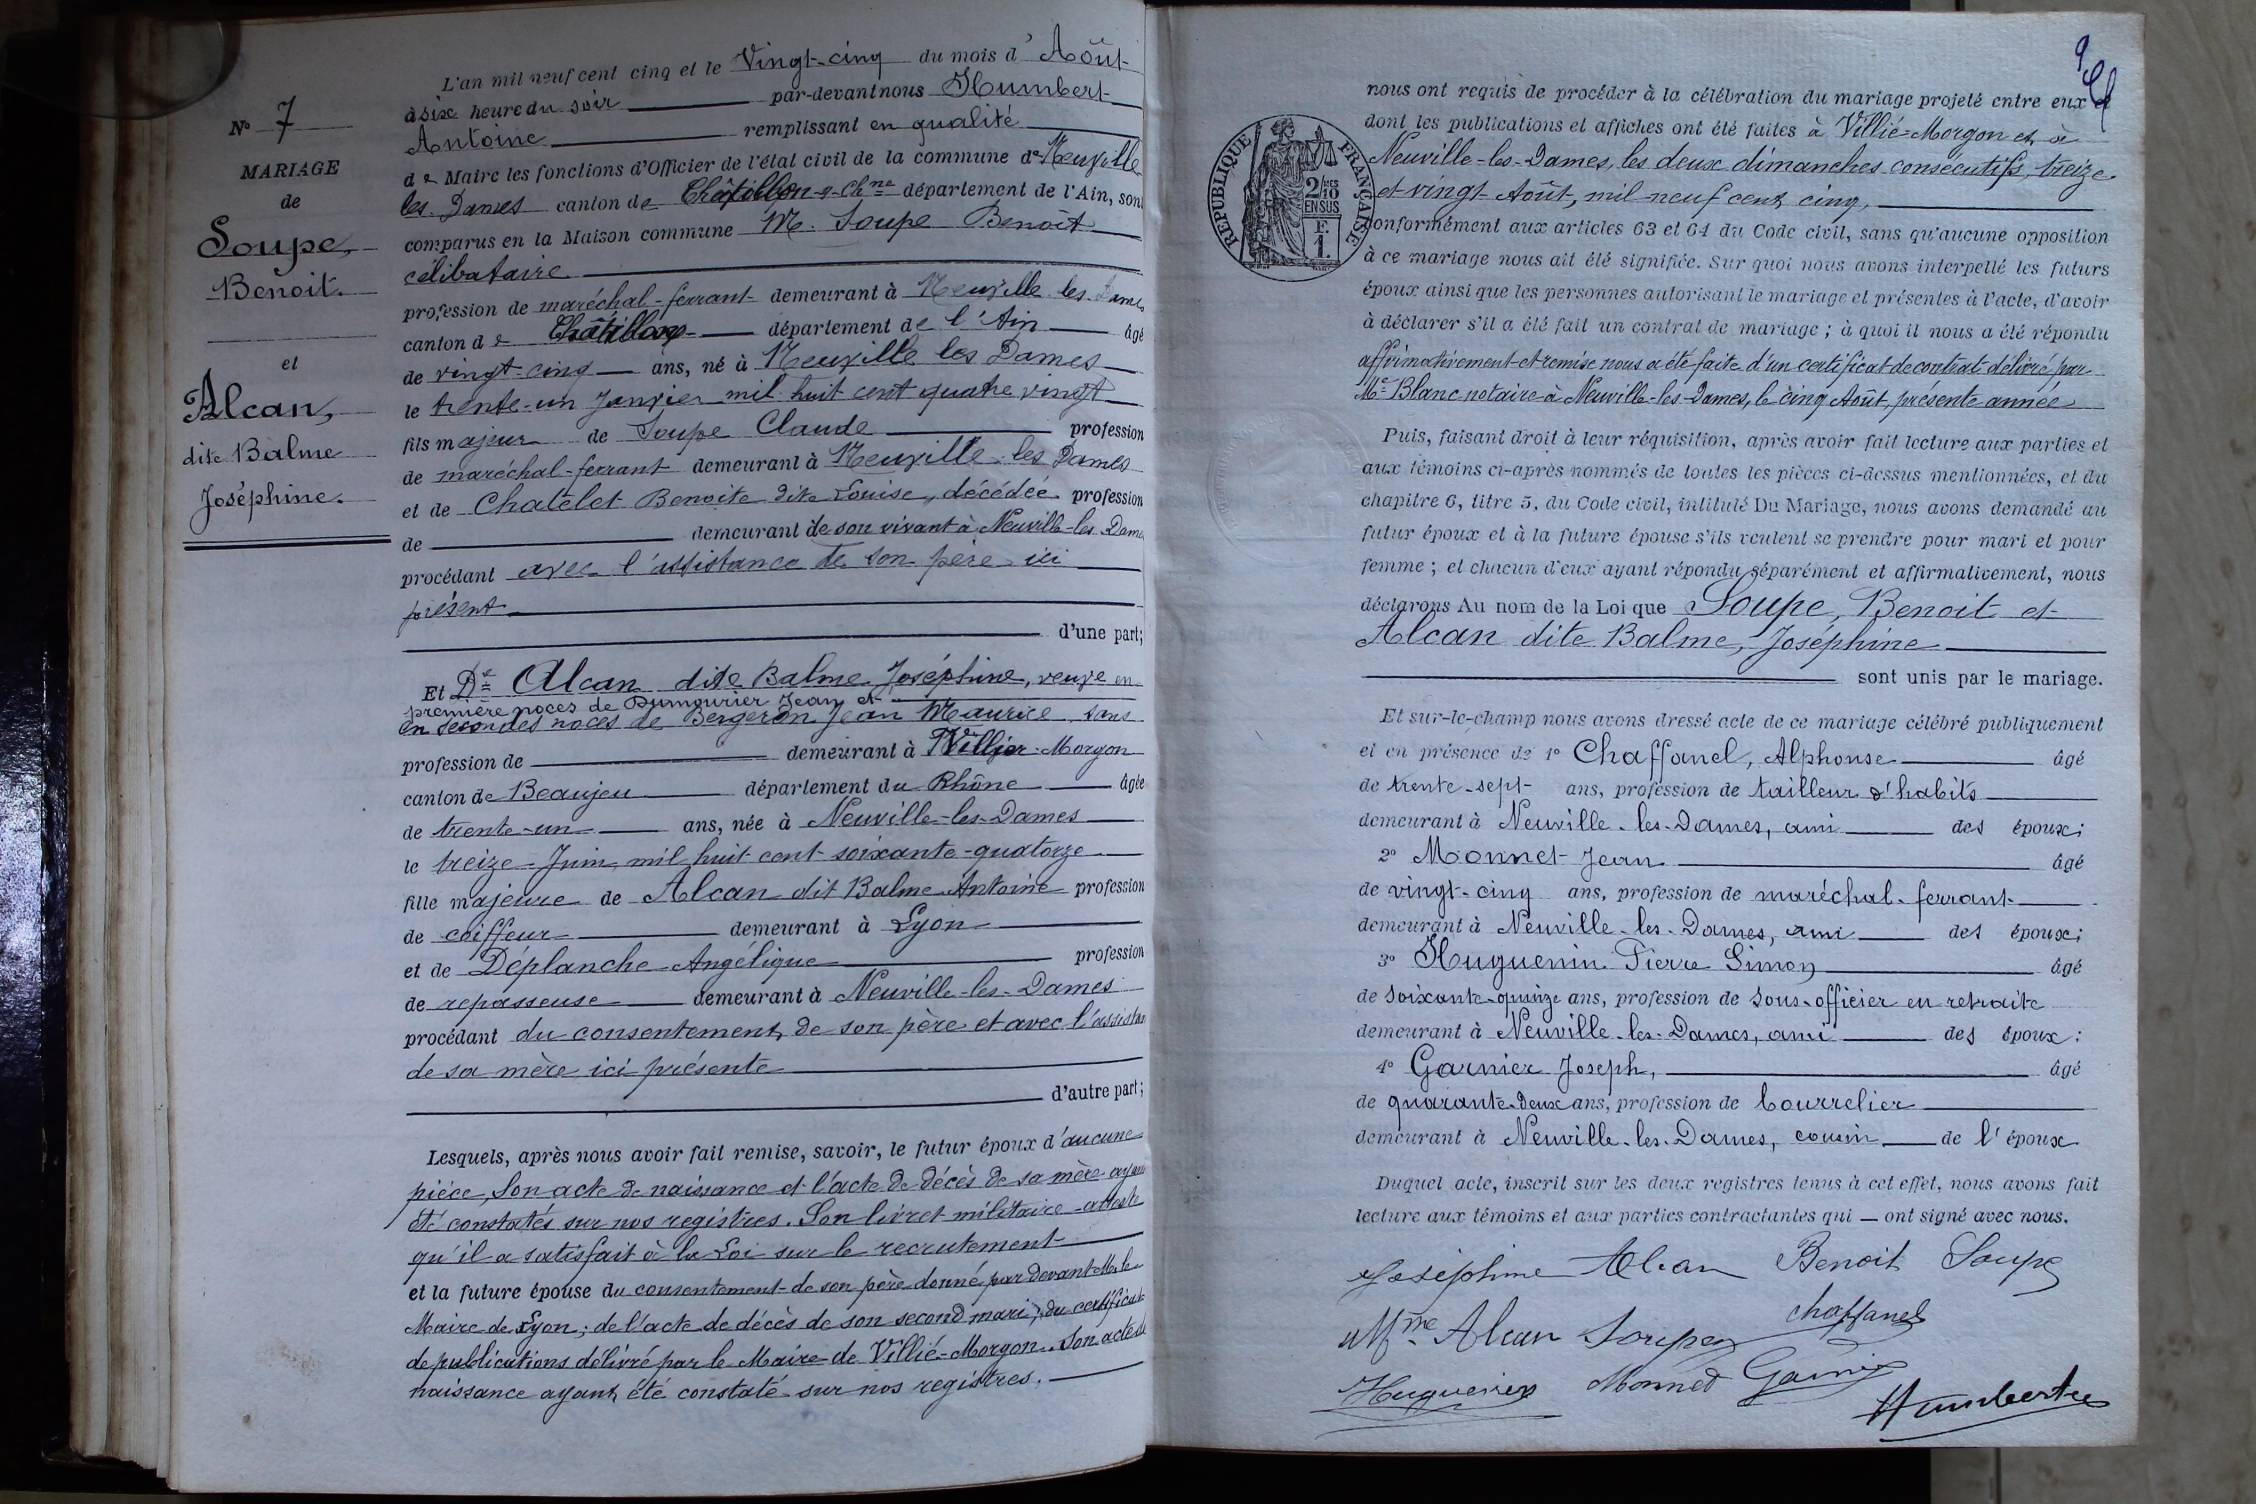 N° 7
MARIAGE
de
Soupe,
Benoit.
et
Alcan,
dite Balme
Joséphine.
L'an mil neuf cent cinq et le Vingt-cinq du mois d'Août
à six heure du soir par-devant nous Humbert
Antoine remplissant en qualité
de Maire les fonctions d'Officier de l'état civil de la commune de Neuville
les Dames canton de Châtillon-s-Chne département de l'Ain, sont
comparus en la Maison commune M. Soupe Benoît
célibataire
profession de maréchal-ferrant demeurant à Neuville les Dames
canton de Châtillon département de l'Ain âgé
de vingt-cinq ans, né à Neuville les Dames
le trente-un Janvier mil huit cent quatre vingt
fils majeur de Soupe Claude profession
de maréchal-ferrant demeurant à Neuville les Dames
et de Chatelet Benoite dite Louise, décédée profession
de demeurant de son vivant à Neuville-les-Dames
procédant avec l'assistance de son père ici
présent
d'une part;
Et De Alcan dite Balme Joséphine, veuve en
première noces de Dumourier Jean et
en secondes noces de Bergeron Jean Maurice sans
profession de demeurant à Villié-Morgon
canton de Beaujeu département du Rhône âgée
de trente-un ans, née à Neuville-les-Dames
le treize Juin mil huit cent soixante-quatorze
fille majeure de Alcan dit Balme Antoine profession
de coiffeur demeurant à Lyon
et de Déplanche Angélique profession
de repasseuse demeurant à Neuville-les-Dames
procédant du consentement de son père et avec l'assistan
de sa mère ici présente
d'autre part;
Lesquels, après nous avoir fait remise, savoir, le futur époux d'aucune
pièce, Son acte de naissance et l'acte de décès de sa mère ayant
été constatés sur nos registres. Son livret militaire atteste
qu'il a satisfait à la Loi sur le recrutement
et la future épouse du consentement de son père donné par devant M. le
Maire de Lyon; de l'acte de décès de son second mari; du certificat
de publications délivré par le Maire de Villié-Morgon. Son acte de
naissance ayant été constaté sur nos registres.
9
RÉPUBLIQUE FRANÇAISE
2/10 EN SUS
F.
1.
nous ont requis de procéder à la célébration du mariage projeté entre eux et
dont les publications et affiches ont été faites à Villié-Morgon et à
Neuville-les-Dames, les deux dimanches consécutifs, treize
et vingt Août, mil neuf cent cinq,
conformément aux articles 63 et 64 du Code civil, sans qu'aucune opposition
à ce mariage nous ait été signifiée. Sur quoi nous avons interpellé les futurs
époux ainsi que les personnes autorisant le mariage et présentes à l'acte, d'avoir
à déclarer s'il a été fait un contrat de mariage ; à quoi il nous a été répondu
affirmativement et remise nous a été faite d'un certificat de contrat délivré par
Me Blanc notaire à Neuville-les-Dames, le cinq Août, présente année
Puis, faisant droit à leur réquisition, après avoir fait lecture aux parties et
aux témoins ci-après nommés de toutes les pièces ci-dessus mentionnées, et du
chapitre 6, titre 5, du Code civil, intitulé Du Mariage, nous avons demandé au
futur époux et à la future épouse s'ils veulent se prendre pour mari et pour
femme ; et chacun d'eux ayant répondu séparément et affirmativement, nous
déclarons Au nom de la Loi que Soupe, Benoit et
Alcan dite Balme, Joséphine
sont unis par le mariage.
Et sur-le-champ nous avons dressé acte de ce mariage célébré publiquement
et en présence de 1° Chaffanel, Alphonse âgé
de trente-sept ans, profession de tailleur d'habits
demeurant à Neuville-les-Dames, ami des époux;
2° Monnet Jean âgé
de vingt-cinq ans, profession de maréchal-ferrant
demeurant à Neuville-les-Dames, ami des époux;
3° Huguenin Pierre Simon âgé
de soixante-quinze ans, profession de sous-officier en retraite
demeurant à Neuville-les-Dames, ami des époux;
4° Garnier Joseph, âgé
de quarante-deux ans, profession de bourrelier
demeurant à Neuville-les-Dames, cousin de l'époux
Duquel acte, inscrit sur les deux registres tenus à cet effet, nous avons fait
lecture aux témoins et aux parties contractantes qui — ont signé avec nous.
Joséphine Alcan Benoit Soupe
Mme Alcan Soupe Chaffanel
Huguenin Monnet Garnier
Humbert